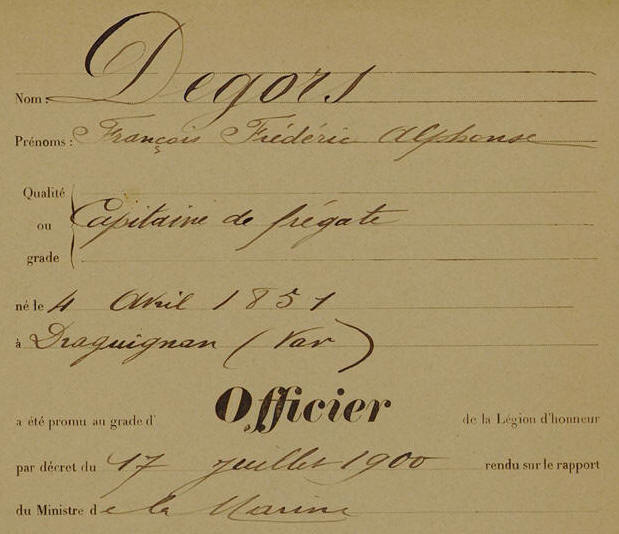 Nom : Degors
Prénoms : François Frédéric Alphonse
Qualité
ou Capitaine de frégate
grade
né le 4 Avril 1851
à Draguignan (Var)
a été promu au grade d' Officier de la Légion d'honneur
par décret du 17 juillet 1900 rendu sur le rapport
du Ministre de la Marine